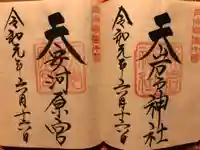 天岩戸神社
令和元年六月十六日
天安河原宮
令和元年六月十六日